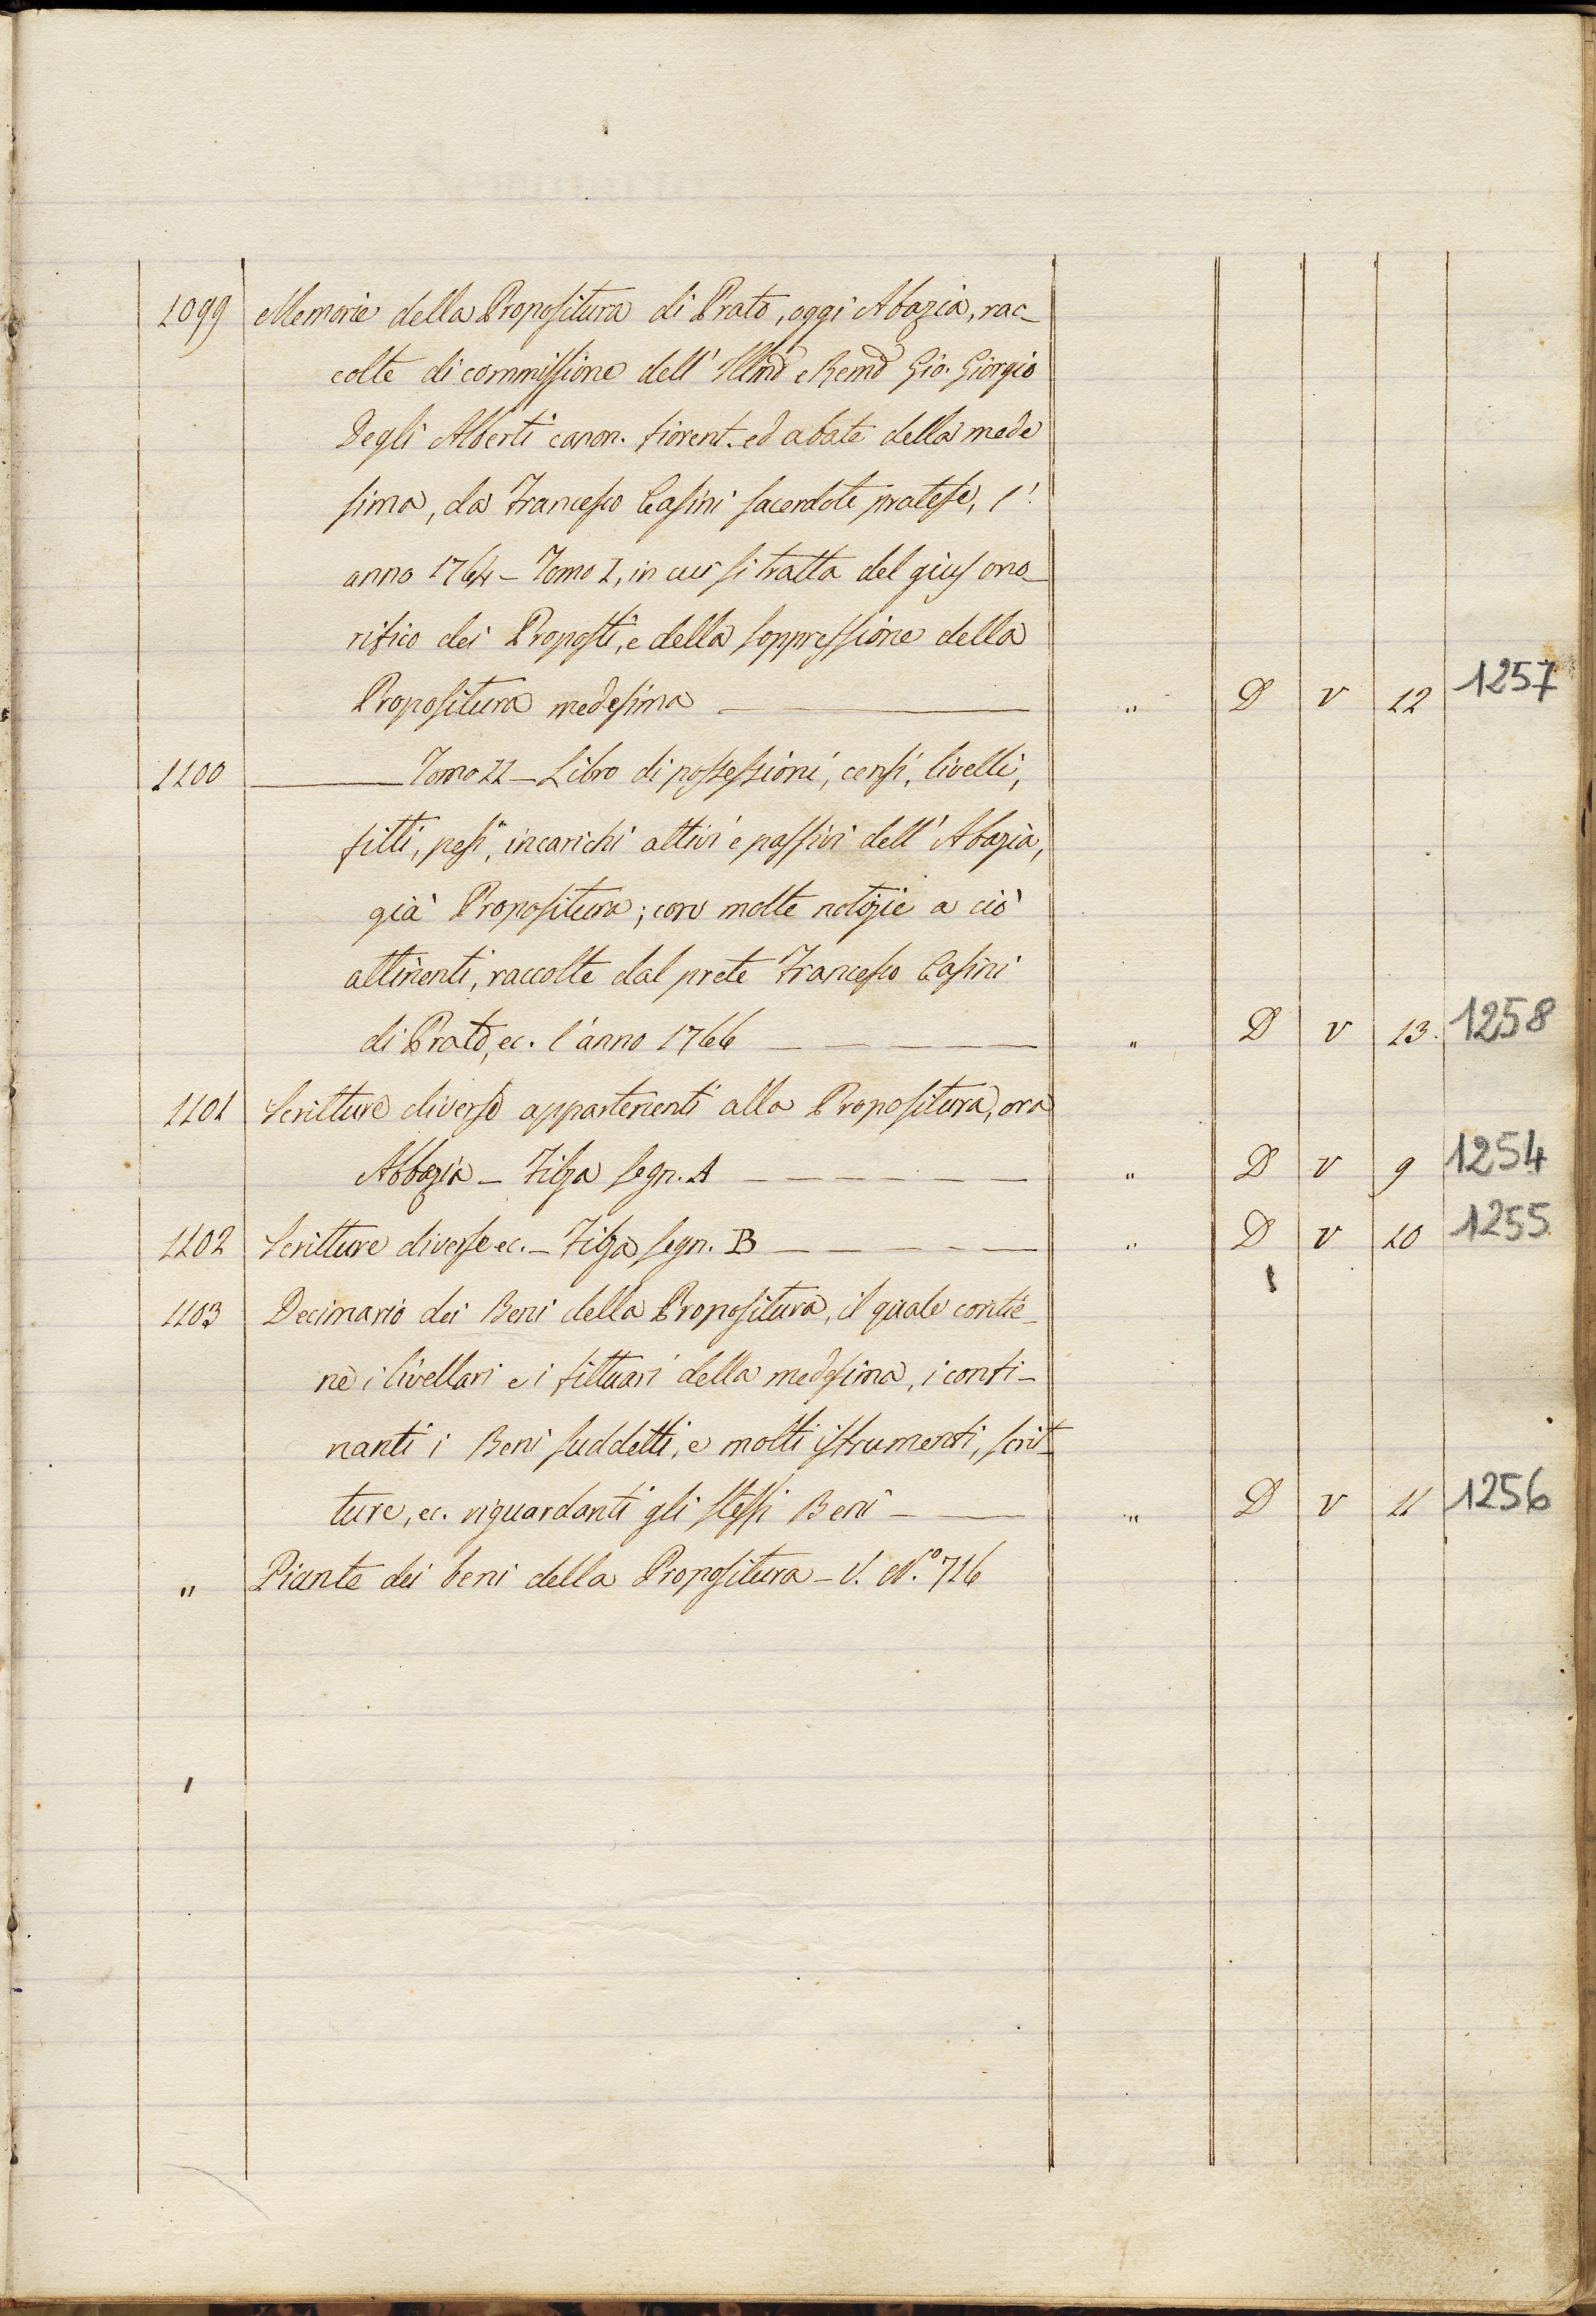 1099 Memorie della Propositura di Prato, oggi Abazia, rac-
colte di commissione dell' Illmo e Remo Gio. Giorgio
Degli Alberti canon. fiorent. ed abate della mede
sima, da Francesco Casini sacerdote pratese, l'
anno 1764 – Tomo I, in cui si tratta del gius ono-
rifico dei Proposti, e della soppressione della
Propositura medesima " D V 12 1257
1100 Tomo II – Libro di possessioni, censi, livelli,
fitti, pesi, incarichi attivi e passivi dell' Abazia,
già Propositura; con molte notizie a ciò
attinenti, raccolte dal prete Francesco Casini
di Prato, ec. l'anno 1766 " D V 13. 1258
1101 Scritture diverse appartenenti alla Propositura, ora
Abbazia – Filza segn. A " D V 9 1254
1102 Scritture diverse ec. – Filza segn. B " D V 10 1255
1103 Decimario dei Beni della Propositura, il quale contie-
ne i livellari e i fittuari della medesima, i confi-
nanti i Beni suddetti, e molti istrumenti, scrit-
ture, ec. riguardanti gli stessi Beni " D V 11 1256
" Piante dei beni della Propositura – V. N.° 716